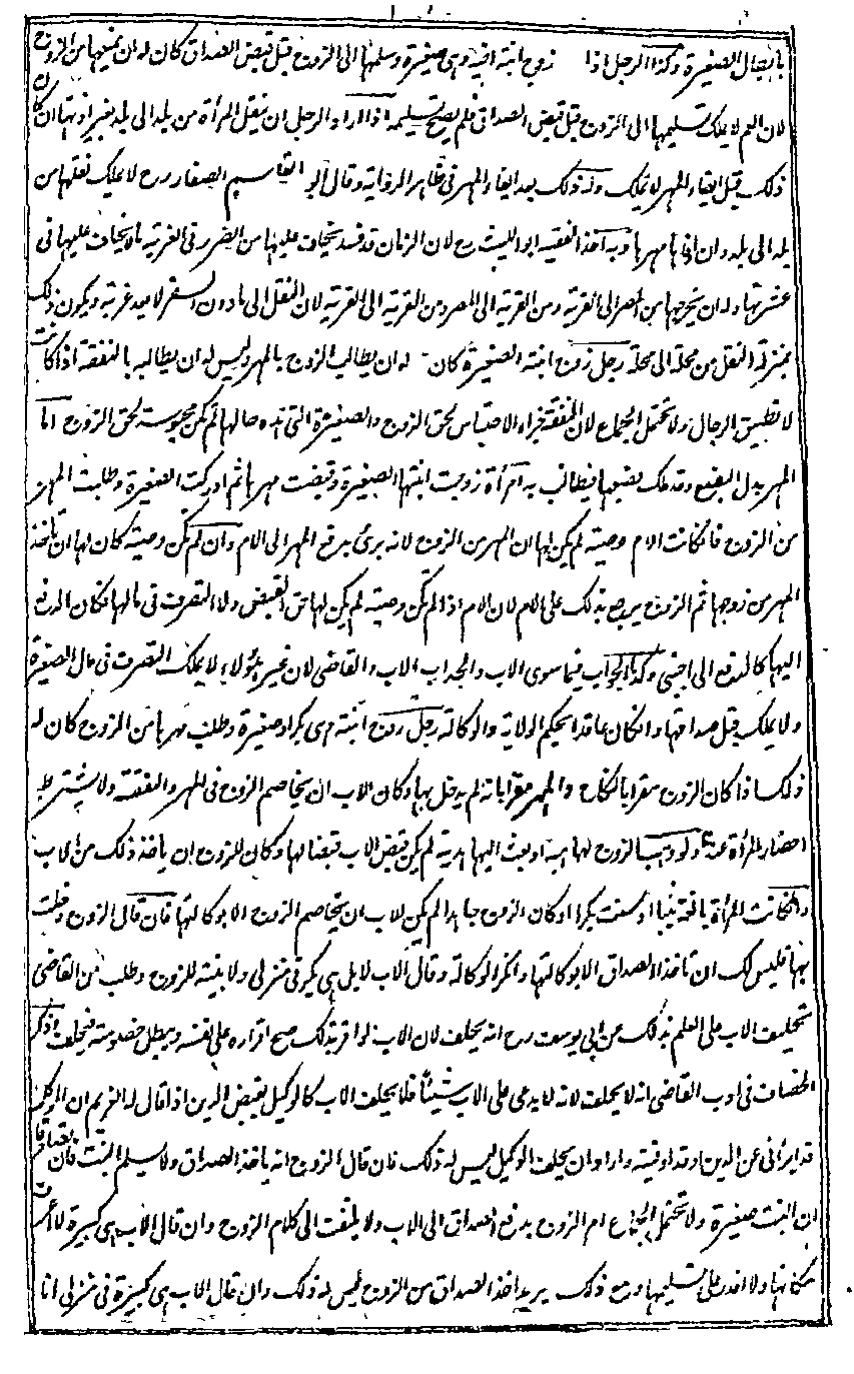 بايصال الصغيرة وكذا الرجل اذا زوج ابنة اخيه وهى صغيرة وسلمها الى الزوج قبل قبض الصداق كان له ان يمنعها من الزوج
لان العم لا يملك تسليمها الى الزوج قبل قبض الصداق فلم يصح تسليمه اذا اراد الرجل ان ينقل المرأة من بلد الى بلد بغير اذنها ان كان
ذلك قبل ايفاء المهر لا يملك وله ذلك بعد ايفاء المهر فى ظاهر الرواية وقال ابو القاسم الصفار رح لا يملك نقلها من
بلد الى بلد وان اوفاها مهرها وبه اخذ الفقيه ابو الليث رح لان الزمان قد فسد يخاف عليها من الضرر فى الغربة ما لا يخاف عليها فى
عشرتها وله ان يخرجها من المصر الى القرية ومن القرية الى المصر ومن القرية الى القرية لان النقل الى ما دون السفر لا يعد غربة ويكون ذلك
بمنزلة النقل من محلة الى محلة رجل زوج ابنته الصغيرة كان له ان يطالب الزوج بالمهر وليس له ان يطالبه بالنفقة اذا كانت
لا تطيق الرجال ولا تحتمل الجماع لان النفقة جزاء الاحتباس لحق الزوج والصغيرة التى هذه حالها لم تكن محبوسة لحق الزوج اما
المهر بدل البضع وقد ملك بضعها فيطالب به امرأة زوجت ابنتها الصغيرة وقبضت مهرها ثم ادركت الصغيرة وطلبت المهر
من الزوج فان كانت الام وصية لم يكن لها ان المهر من الزوج لانه برئ بدفع المهر الى الام وان لم تكن وصية كان لها ان تأخذ
المهر من زوجها ثم الزوج يرجع بذلك على الام لان الام اذا لم تكن وصية لم يكن لها حق القبض ولا التصرف فى مالها فكان الدفع
اليها كالدفع الى اجنبى وكذا الجواب فيما سوى الاب والجد اب الاب والقاضى لان غير هؤلاء لا يملك التصرف فى مال الصغيرة
ولا يملك قبض صداقها وان كان عاقدا بحكم الولاية والوكالة رجل زوج ابنته وهى بكر او صغيرة وطلب مهرها من الزوج كان له
ذلك اذا كان الزوج مقرا بالنكاح والمهر مقرا بانه لم يدخل بها وكان للاب ان يخاصم الزوج فى المهر والنفقة ولا يشترط
احضار المرأة عندنا ولو وهب الزوج لها هبة او بعث اليها هدية لم يكن قبض الاب قبضا لها وكان للزوج ان ياخذ ذلك من الاب
وان كانت المرأة بالغة ثيبا او كانت بكرا وكان الزوج جاهدا لم يكن للاب ان يخاصم الزوج الا بوكالتها فان قال الزوج دخلت
بها فليس لك ان تأخذ الصداق الا بوكالتها وانكر الوكالة وقال الاب لا بل هى بكر فى منزلى ولا بينة للزوج وطلب من القاضى
تحليف الاب على العلم بذلك عن ابى يوسف رح انه يحلف لان الاب لو اقر بذلك صح اقراره على نفسه ويبطل خصومته فيحلف وذكر
الخصاف فى ادب القاضى انه لا يحلف لانه لا يدعى على الاب شيئا فلا يحلف الاب كالوكيل بقبض الدين اذا قال له الغريم ان الموكل
قد ابرأنى عن الدين او قد اوفيته واراد ان يحلف الوكيل ليس له ذلك فان قال الزوج انه ياخذ الصداق ولا يسلم البنت فان
ان البنت صغيرة ولا تحتمل الجماع امر الزوج بدفع الصداق الى الاب ولا يلتفت الى كلام الزوج وان قال الاب هى كبيرة لا اعرف
مكانها ولا اقدر على تسليمها ومع ذلك يريد اخذ الصداق من الزوج ليس له ذلك وان قال الاب هى كبيرة فى منزلى انا